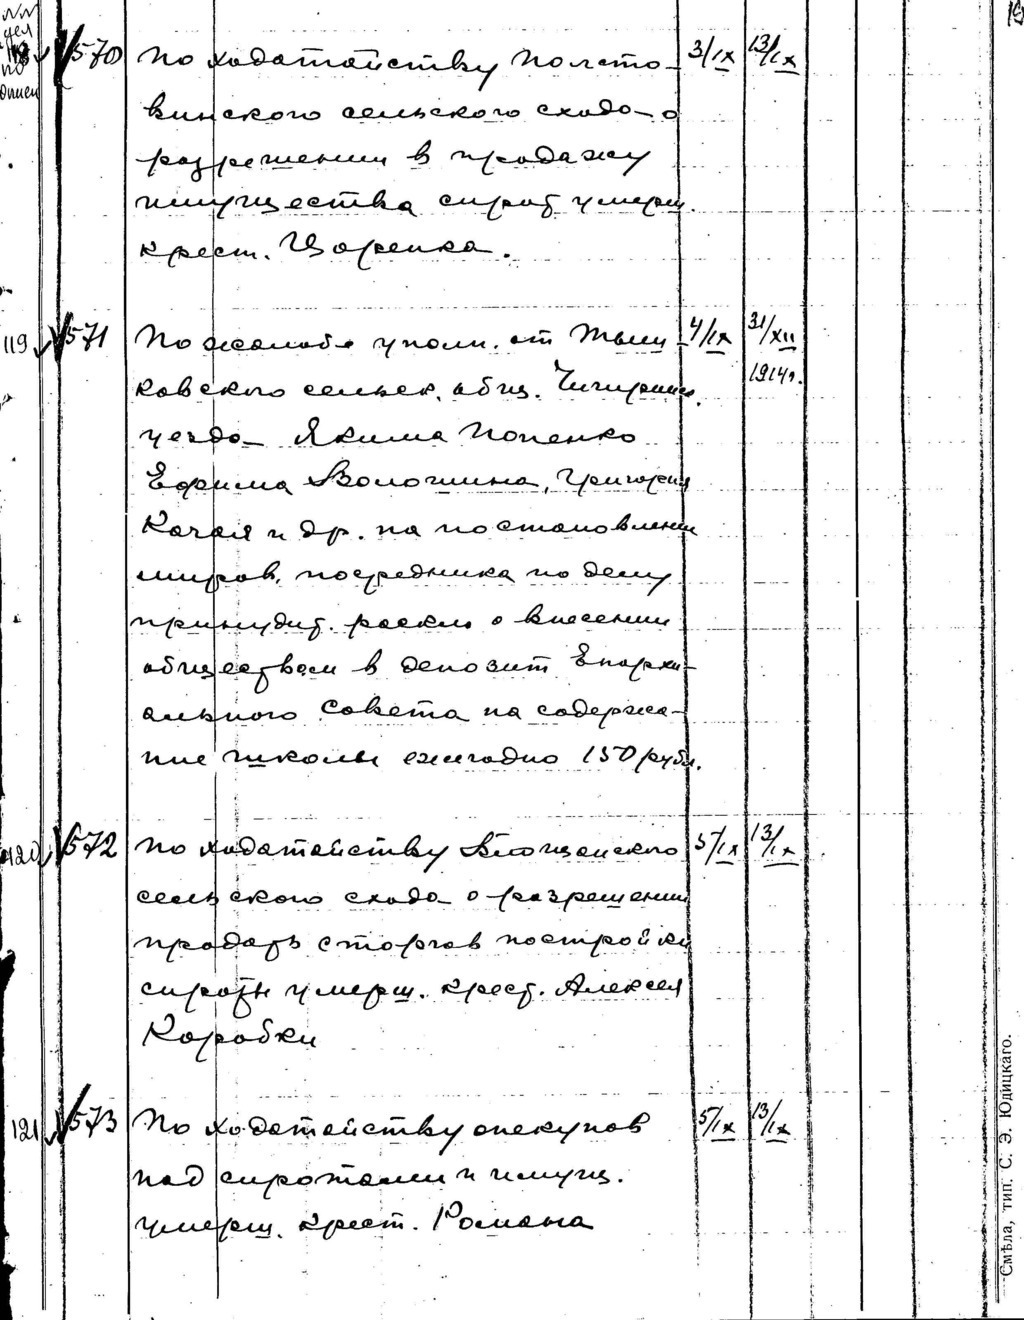 NN
дел
по
описи
118 570 По ходатайству Полсто- 3/IX 13/IX
винского сельского схода о
разрешении в продажу
имущества сирот умерш.
крест. Царенка.
119 571 По жалобе уполн. от Тьши- 4/IX 31/XII
ковского сельск. общ. Чигиринск. 1914г.
уезда Якима Попенко
Ефима Волошина, Григория
Качая и др. на постановлении
миров. посредника по делу
принудит. о внесении
обществом в депозит Епархи-
ального Совета на содержа-
ние школы ежегодно 150 рубл.
120 572 По ходатайству сельского схода о разрешении 5/IX 13/IX
продать с торгов постройки
сироты умерш. крест. Алексея
Коробки
121 573 По ходатайству опекунов 5/IX 13/IX
над сиротами и имущ.
умерш. крест. Романа
Смѣла, тип. С. Э. Юдицкаго.